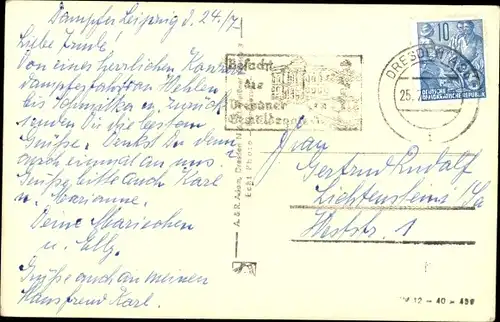 Dampfer Leipzig d. 24./7.
Liebe Trude!
Von einer herrlichen
Dampferfahrt von Wehlen
bis Schmilka u. zurück
senden Dir die besten
Grüße. Denkst Du denn
auch einmal an uns.
Grüße bitte auch Karl
u. Marianne.
Deine Mariechen
u. Elly.
Grüße auch an meinen
Hausfreund Karl.
Besucht
die
Dresdner
10
DEUTSCHE
DEMOKRATISCHE REPUBLIK
DRESDEN
25.
Frau
Gertrud Rudolf
Lichtenstein i/Sa
Weststr. 1
A. & R. Adam, Dresden
Echt Photo
12 - 40 - 459